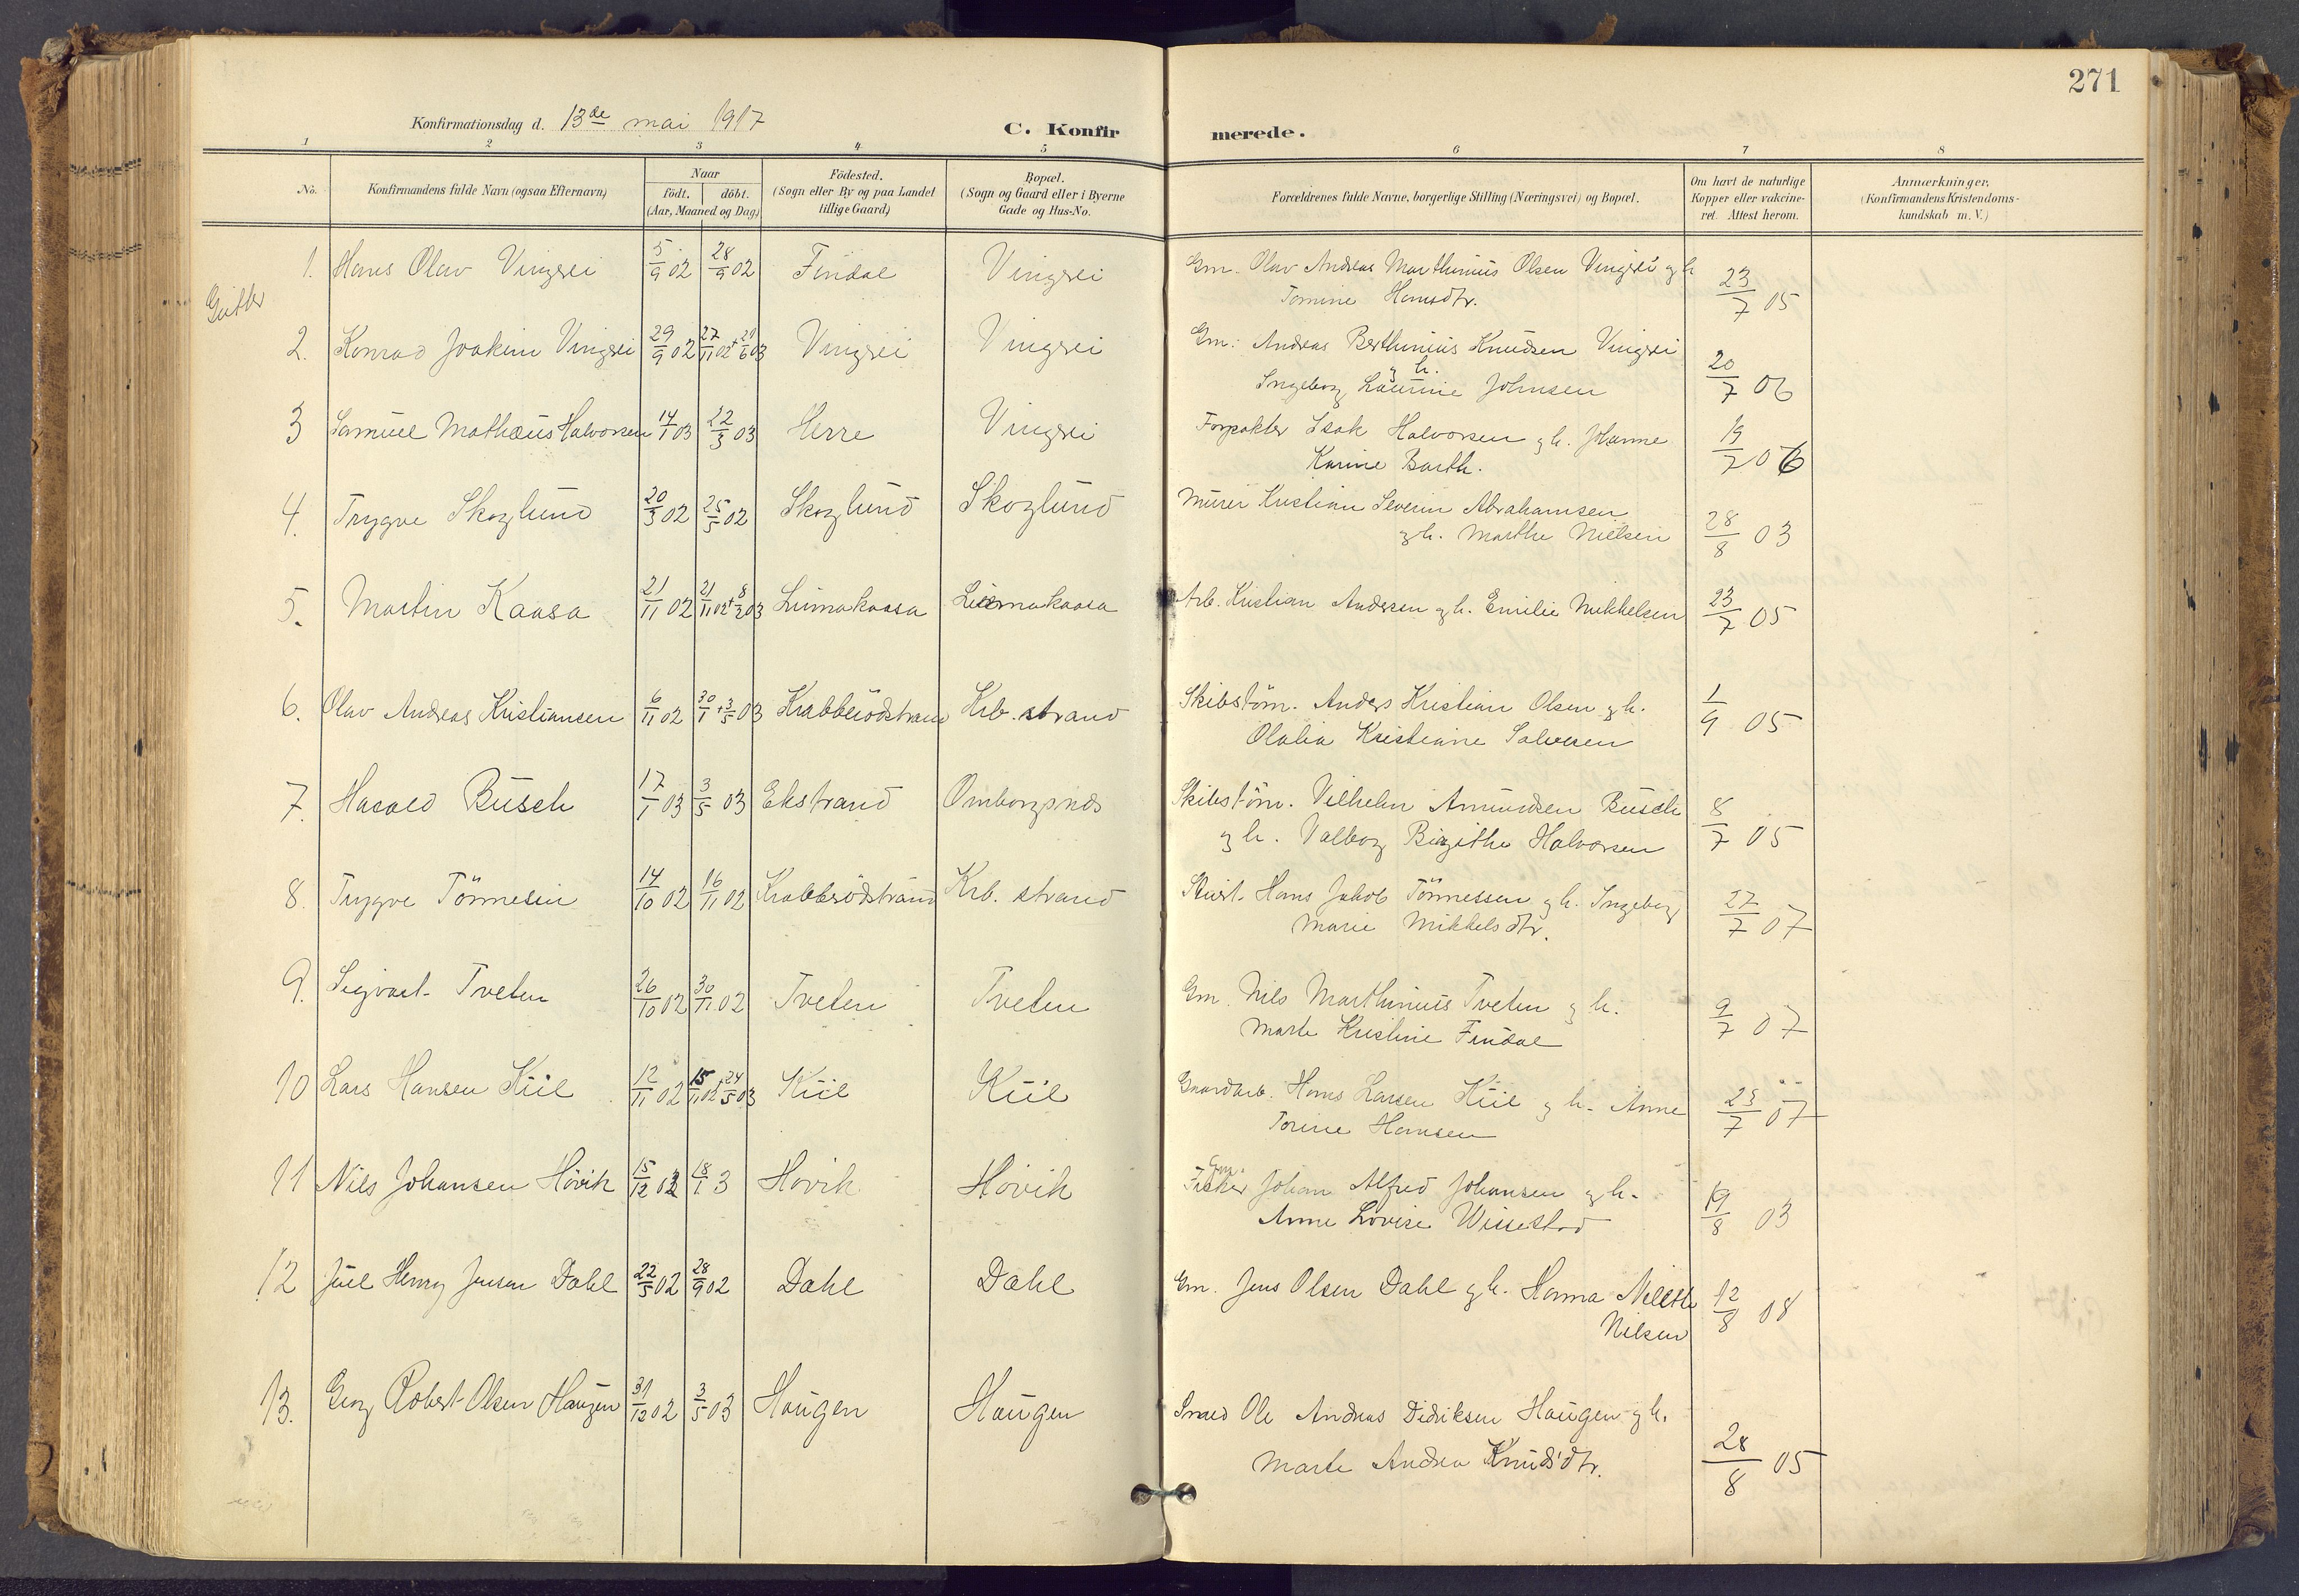 271
Konfirmationsdag d. 13de mai 1917
C. Konfirmerede.
1 2 3 4 5 6 7 8
No. Konfirmandens fulde Navn (ogsaa Efternavn) Naar født. døbt. (Aar, Maaned og Dag) Födested. (Sogn eller By og paa Landet tillige Gaard) Bopæl. (Sogn og Gaard eller i Byerne Gade og Hus-No. Forældrenes fulde Navne, borgerlige Stilling (Næringsvei) og Bopæl. Om havt de naturlige Kopper eller vakcineret. Attest herom. Anmærkninger. (Konfirmandens Kristendomskundskab m. V.)
Gutter
1. Hans Olav Vingrei 5/9 02 28/9 02 Findal Vingrei Gm. Olav Andreas Marthinius Olsen Vingrei og h
Tomine Hansdtr. 23/7 05
2. Konrad Joakim Vingrei 29/9 02 27/11 02 + 21/6 03 Vingrei Vingrei Gm: Andreas Berthinius Knudsen Vingrei
og h. Ingeborg Laurine Johnsen 20/7 06
3 Samuel Mathæus Halvorsen 14/1 03 22/3 03 Herre Vingrei Forpakter Isak Halvorsen og h. Johanne
Karine Barth. 19/7 06
4. Trygve Skoglund 20/3 02 25/5 02 Skoglund Skoglund Murer Kristian Severin Abrahamsen
og h. Marthe Nielsen 28/8 03
5. Martin Kaasa 21/11 02 21/11 02 + 8/3 03 Liimakaasa Liimakaasa Arb. Kristian Andersen og h. Emilie Mikkelsen 23/7 05
6. Olav Andreas Kristiansen 6/11 02 30/1 + 3/5 03 Krabberödstrand Krb. strand Skibstöm. Anders Kristian Olsen og h.
Olalia Kristiane Salvesen 1/9 05
7. Harald Busch 17/1 03 3/5 03 Ekstrand Omborgsnes Skibstöm. Vilhelm Amundsen Busch
og h. Valborg Birgithe Halvorsen 8/7 05
8. Trygve Tönnesen 14/10 02 16/11 02 Krabberödstrand Krb. strand Stuert. Hans Jakob Tönnessen og h. Ingeborg
Marie Mikkelsdtr. 27/7 07
9. Sigvart Tveten 26/10 02 30/11 02 Tveten Tveten Gm. Nils Marthinius Tveten og h.
Marte Kristine Findal 9/7 07
10 Lars Hansen Kiil 12/11 02 15/11 02 + 24/5 03 Kiil Kiil Gaardarb. Hans Larsen Kiil og h. Anne
Torine Hansen 23/7 07
11 Nils Johansen Hövik 15/12 02 18/1 3 Hövik Hövik Gm. Fisker Johan Alfred Johansen og h.
Anne Lovise Wissestad 19/8 03
12 Juel Henry Jensen Dahl 22/5 02 28/9 02 Dahl Dahl Gm. Jens Olsen Dahl og h. Hanna
Nilsen 12/8 08
13. Georg Robert Olsen Haugen 31/12 02 3/5 03 Haugen Haugen Smed Ole Andreas Didriksen Haugen og h.
Marte Andrea Knudsdtr. 28/8 05